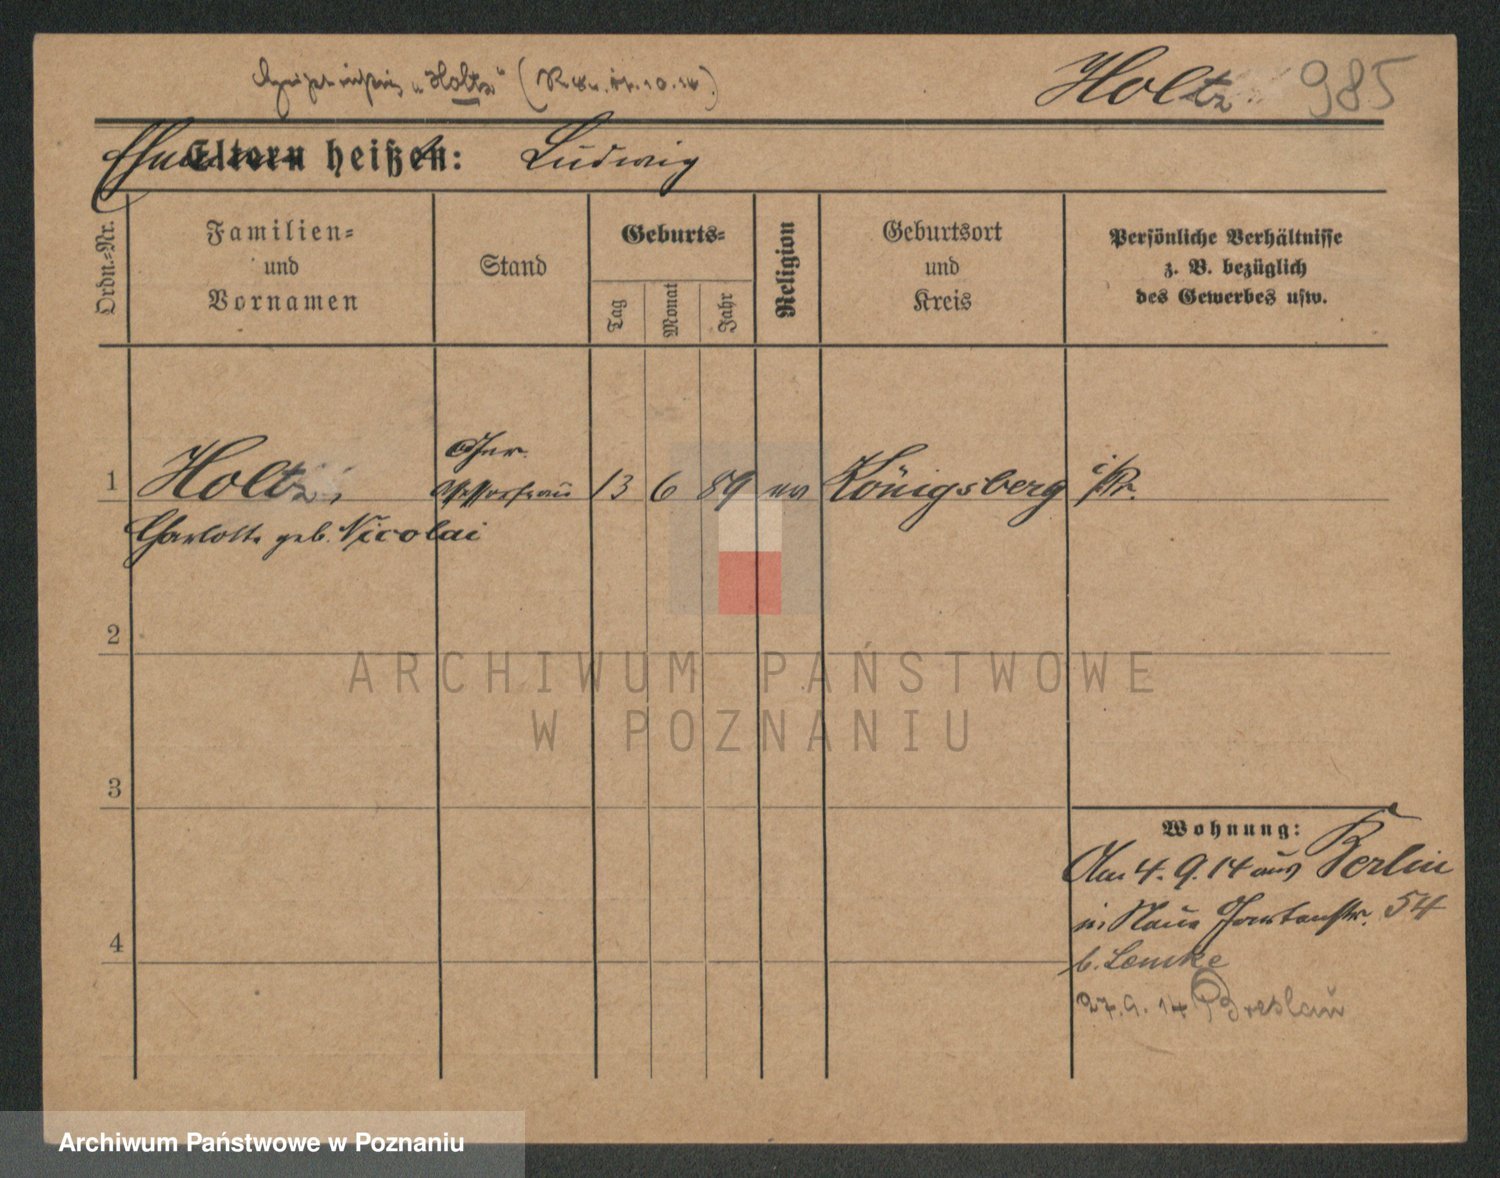 heißt richtig „Holtz“ (R
Holtz. 985
Eltern heißen: Ludwig
Ordn.-Nr.
Familien-
und
Vornamen
Stand
Geburts-
Tag
Monat
Jahr
Religion
Geburtsort
und
Kreis
Persönliche Verhältnisse
z. B. bezüglich
des Gewerbes usw.
1 Holtz, 13 6 89 ev Königsberg i/Pr.
Charlotte geb. Nicolai
2
ARCHIWUM PAŃSTWOWE
W POZNANIU
3
Wohnung:
Am 4. 9. 14 aus Berlin
n. Neue Gartenstr. 54
4
b. Lemke
27. 9. 14 Breslau
Archiwum Państwowe w Poznaniu